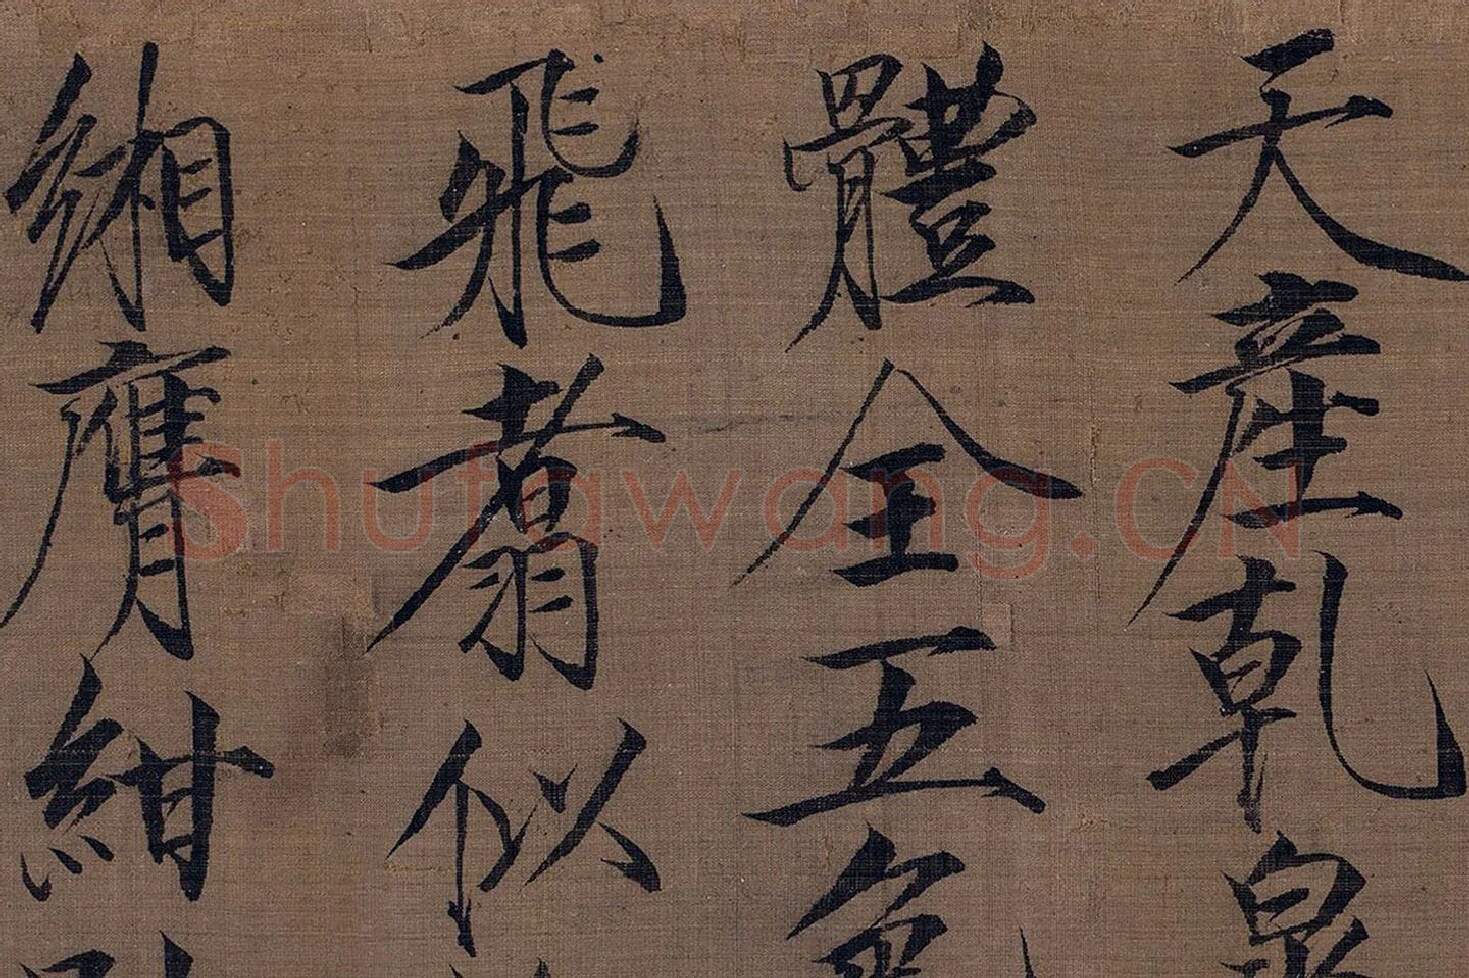 天産乾
體全五色
飛翥似
緗膺紺
Shufawang.CN